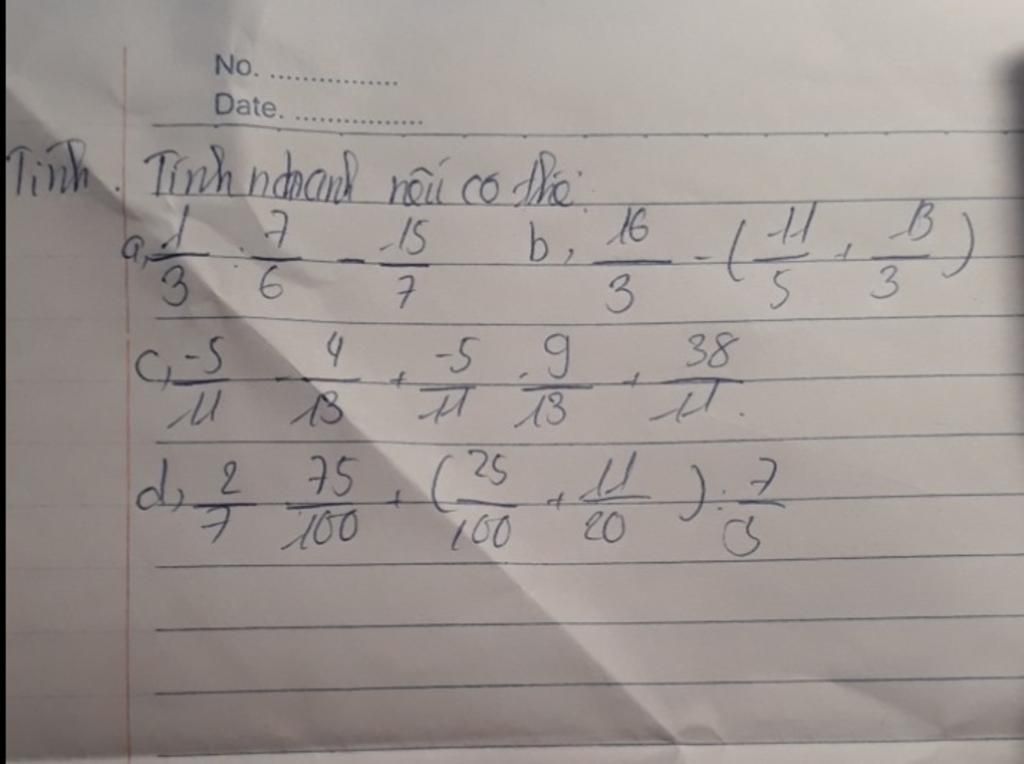 No. ...............
Date. ...............
Tính. Tính nhanh nếu có thể:
a, 1/3 : 7/6 - -15/7 b, 16/3 - (11/5 + 13/3)
c, -5/11 . 4/13 + -5/11 . 9/13 + 38/11.
d, 2/7 75/100 + (25/100 + 11/20) : 7/3